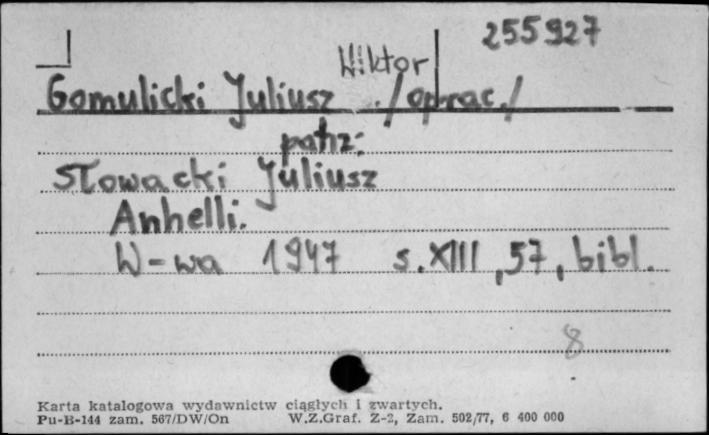 255927
Wiktor
Gomulicki Juliusz ./oprac./
patrz:
Słowacki Juliusz
Anhelli.
W-wa 1947 s. XIII, 57, bibl.
8
Karta katalogowa wydawnictw ciągłych i zwartych.
Pu-B-144 zam. 567/DW/On W.Z.Graf. Z-2, Zam. 502/77, 6 400 000